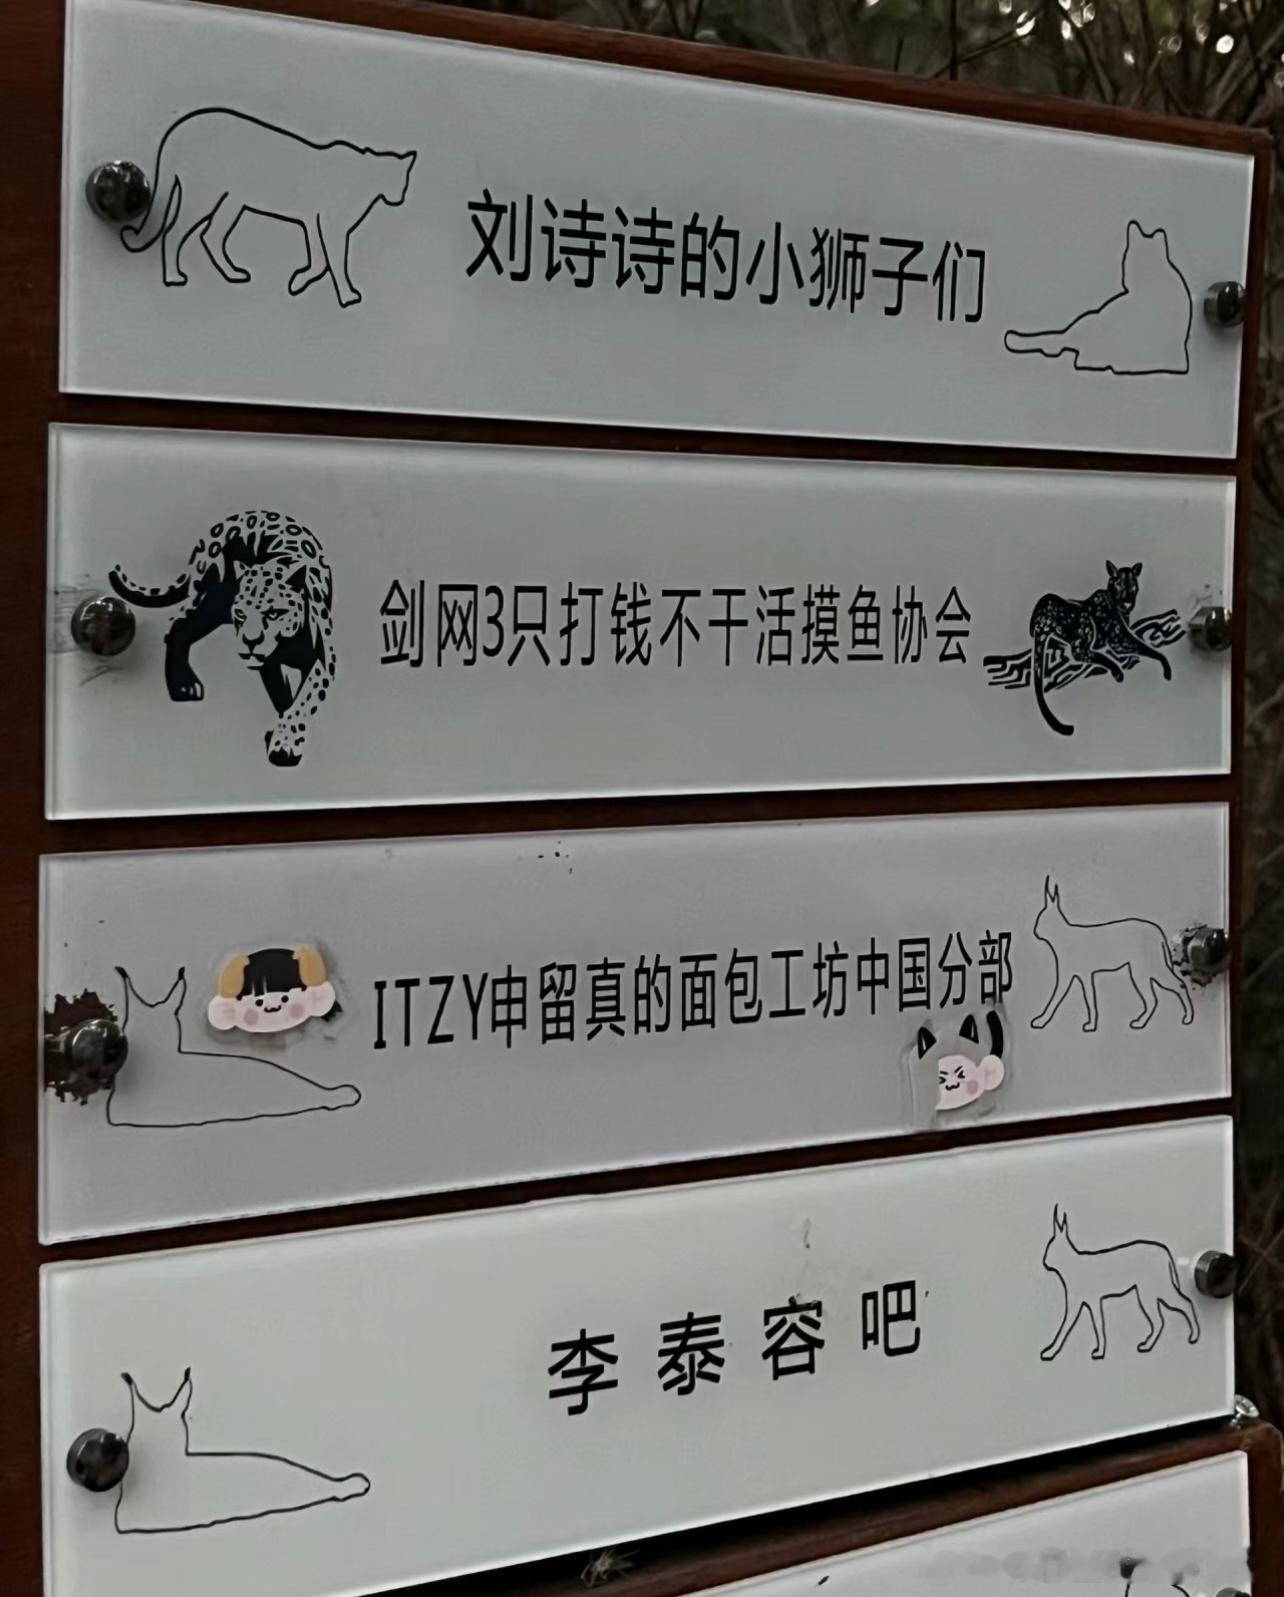 刘诗诗的小狮子们
剑网3只打钱不干活摸鱼协会
ITZY申留真的面包工坊中国分部
李泰容吧